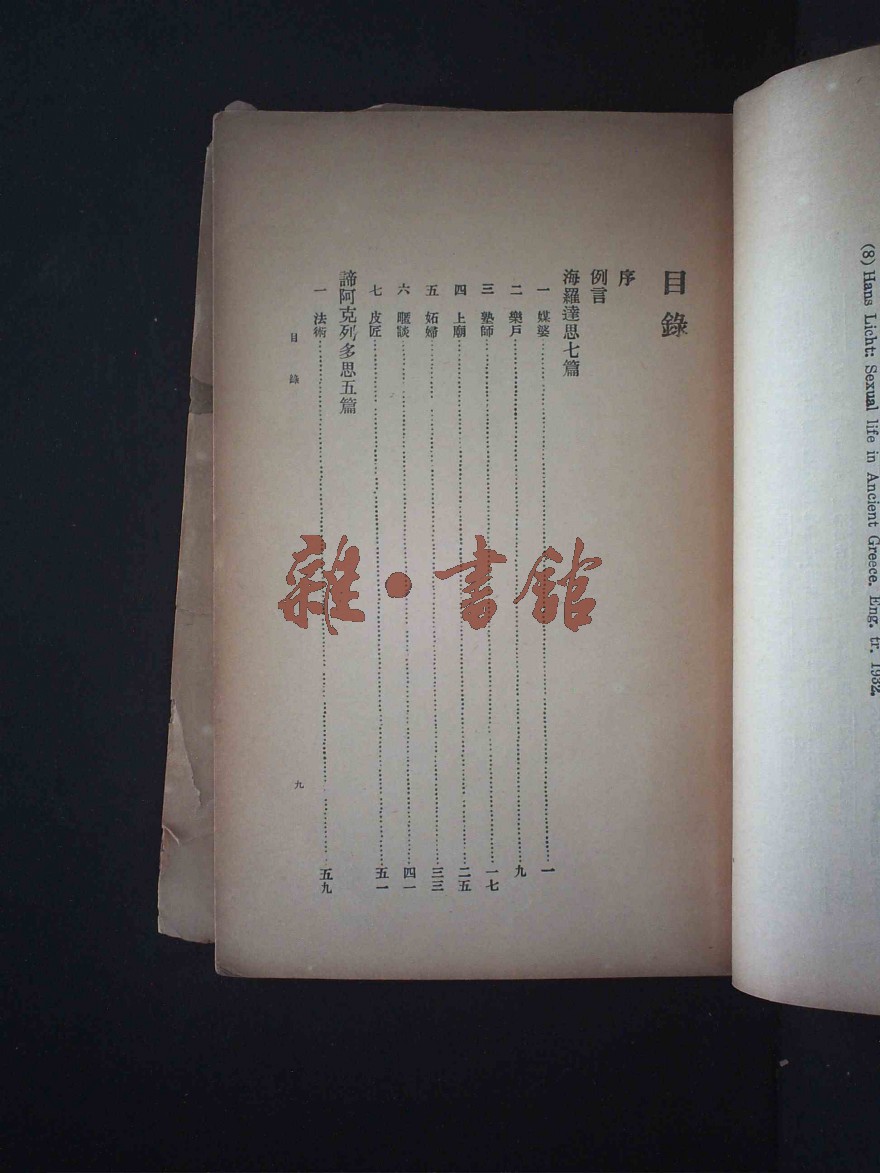 目錄
序
例言
海羅達思七篇
一 媒婆……一
二 樂戶……九
三 塾師……一七
四 上廟……二五
五 妬婦……三三
六 暱談……四一
七 皮匠……五一
諦阿克列多思五篇
一 法術……五九
目錄
九
雜·書館
(8) Hans Licht: Sexual life in Ancient Greece. Eng. tr. 1932.